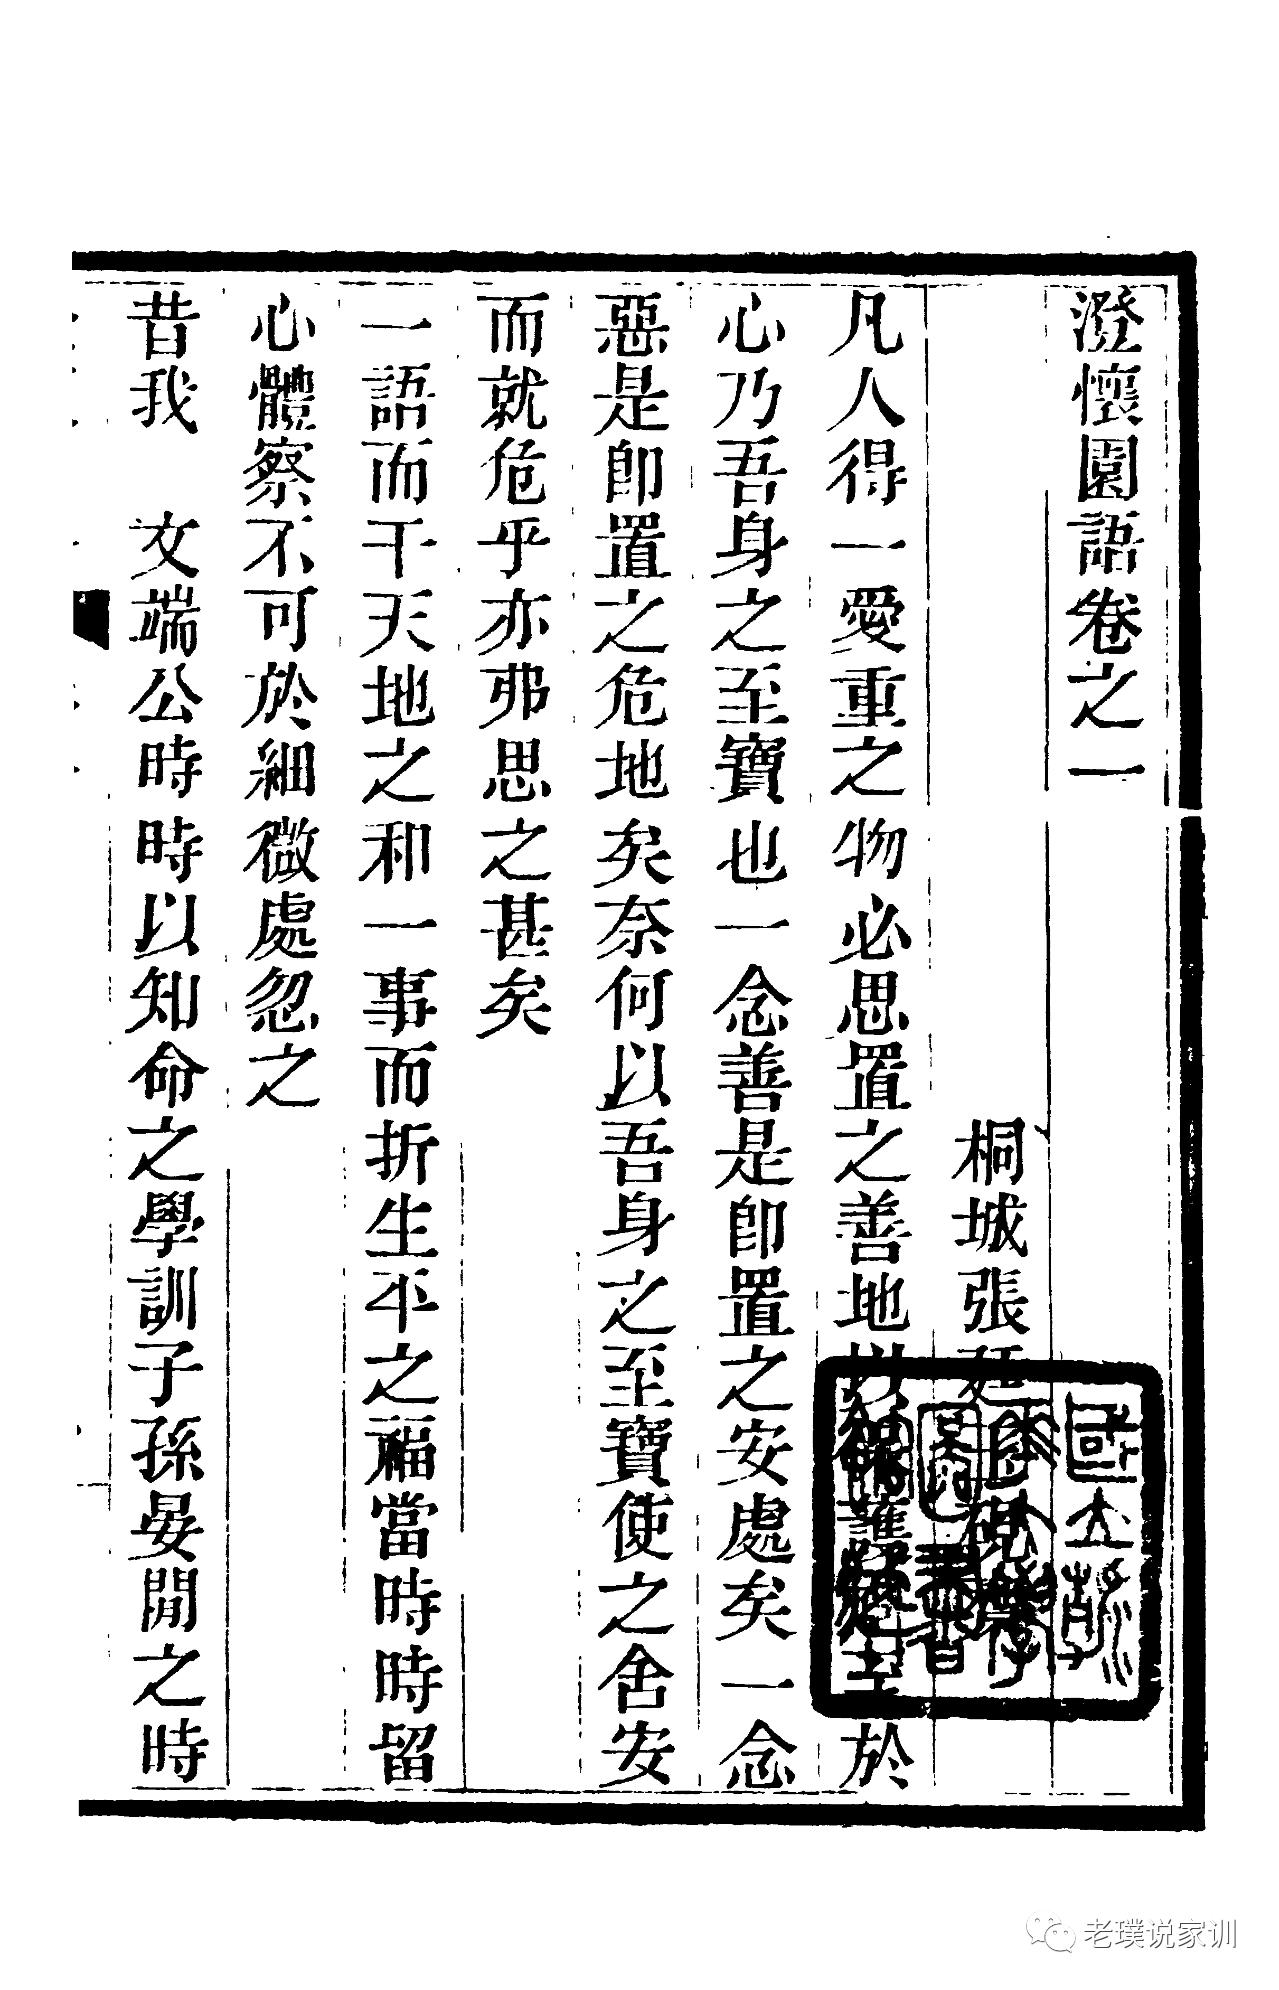 澄懷園語卷之一
桐城張廷玉硯齋
凡人得一愛重之物必思置之善地以保護之至於
心乃吾身之至寶也一念善是卽置之安處矣一念
惡是卽置之危地矣奈何以吾身之至寶使之舍安
而就危乎亦弗思之甚矣
一語而干天地之和一事而折生平之福當時時留
心體察不可於細微處忽之
昔我　文端公時時以知命之學訓子孫晏閒之時
老璞说家训